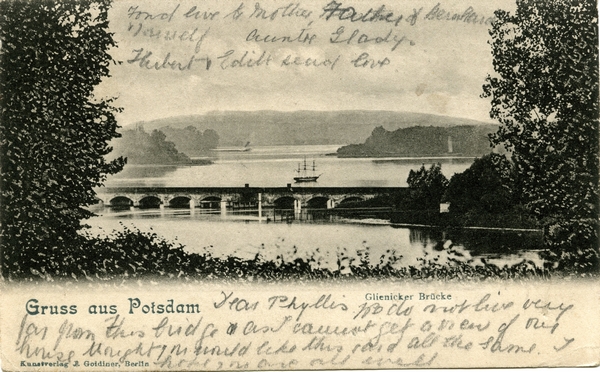 Fond love to Mother, Father &
Yourself Auntie Gladys.
Hubert & Edith send love
Gruss aus Potsdam
Glienicker Brücke
Dear Phyllis, We do not live very
far from this bridge & as I cannot get a view of our
house thought you would like this card all the same. I
hope you are all well
Kunstverlag J. Goldiner, Berlin